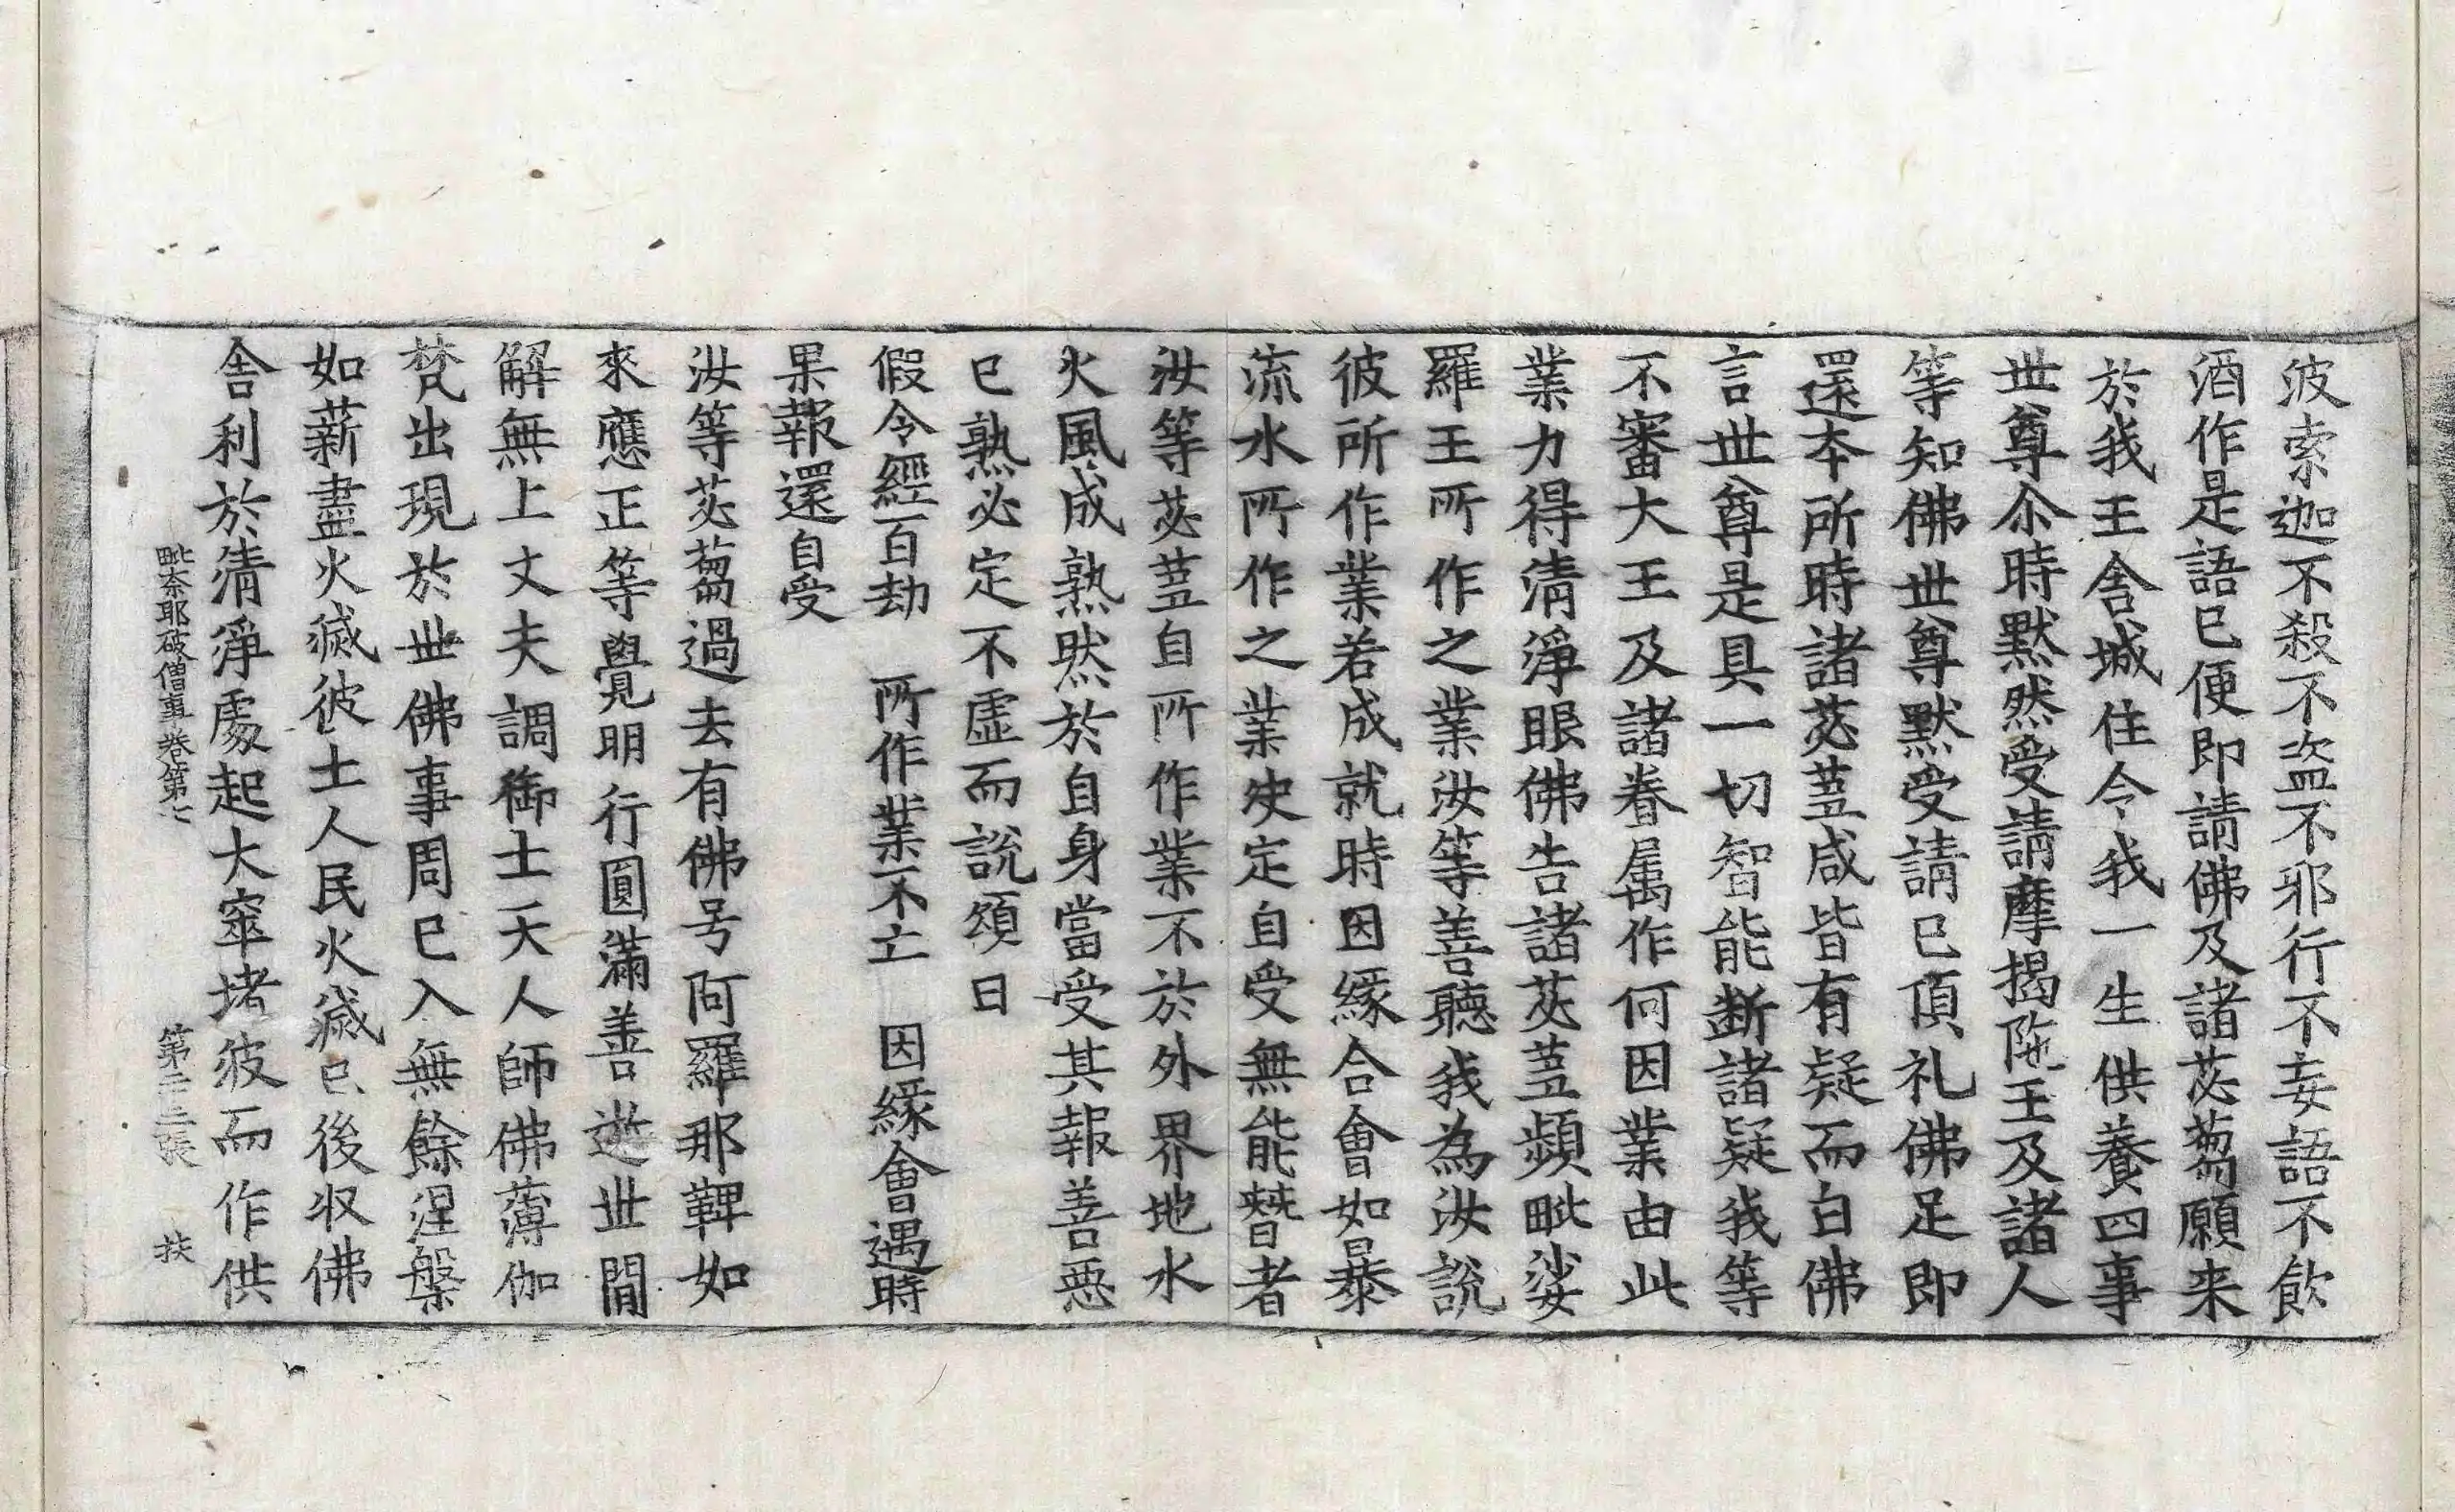 波索迦不殺不盗不邪行不妄語不飲
酒作是語已便即請佛及諸苾蒭願来
於我王舎城住令我一生供養四事
世尊尒時默然受請摩揭陁王及諸人
等知佛世尊默受請已頂礼佛足即
還夲所時諸苾蒭咸皆有疑而白佛
言世尊是具一切智能断諸疑我等
不審大王及諸眷属作何因業由此
業力得清淨眼佛告諸苾蒭頻毗娑
羅王所作之業汝等善聽我為汝說
彼所作業若成就時因緣合會如暴
流水所作之業决定自受無能替者
汝等苾蒭自所作業不於外界地水
火風成熟然於自身當受其報善惡
已熟必定不虛而說頌曰
假令經百劫　所作業不亡　因緣會遇時
果報還自受
汝等苾蒭過去有佛号阿羅那鞞如
來應正等覺明行圓滿善逝世間
解無上丈夫調御士天人師佛薄伽
梵出現於世佛事周已入無餘涅槃
如薪盡火滅彼土人民火滅已後収佛
舎利於清淨處起大窣堵波而作供
毗奈耶破僧事卷第七　第二十三張　扶